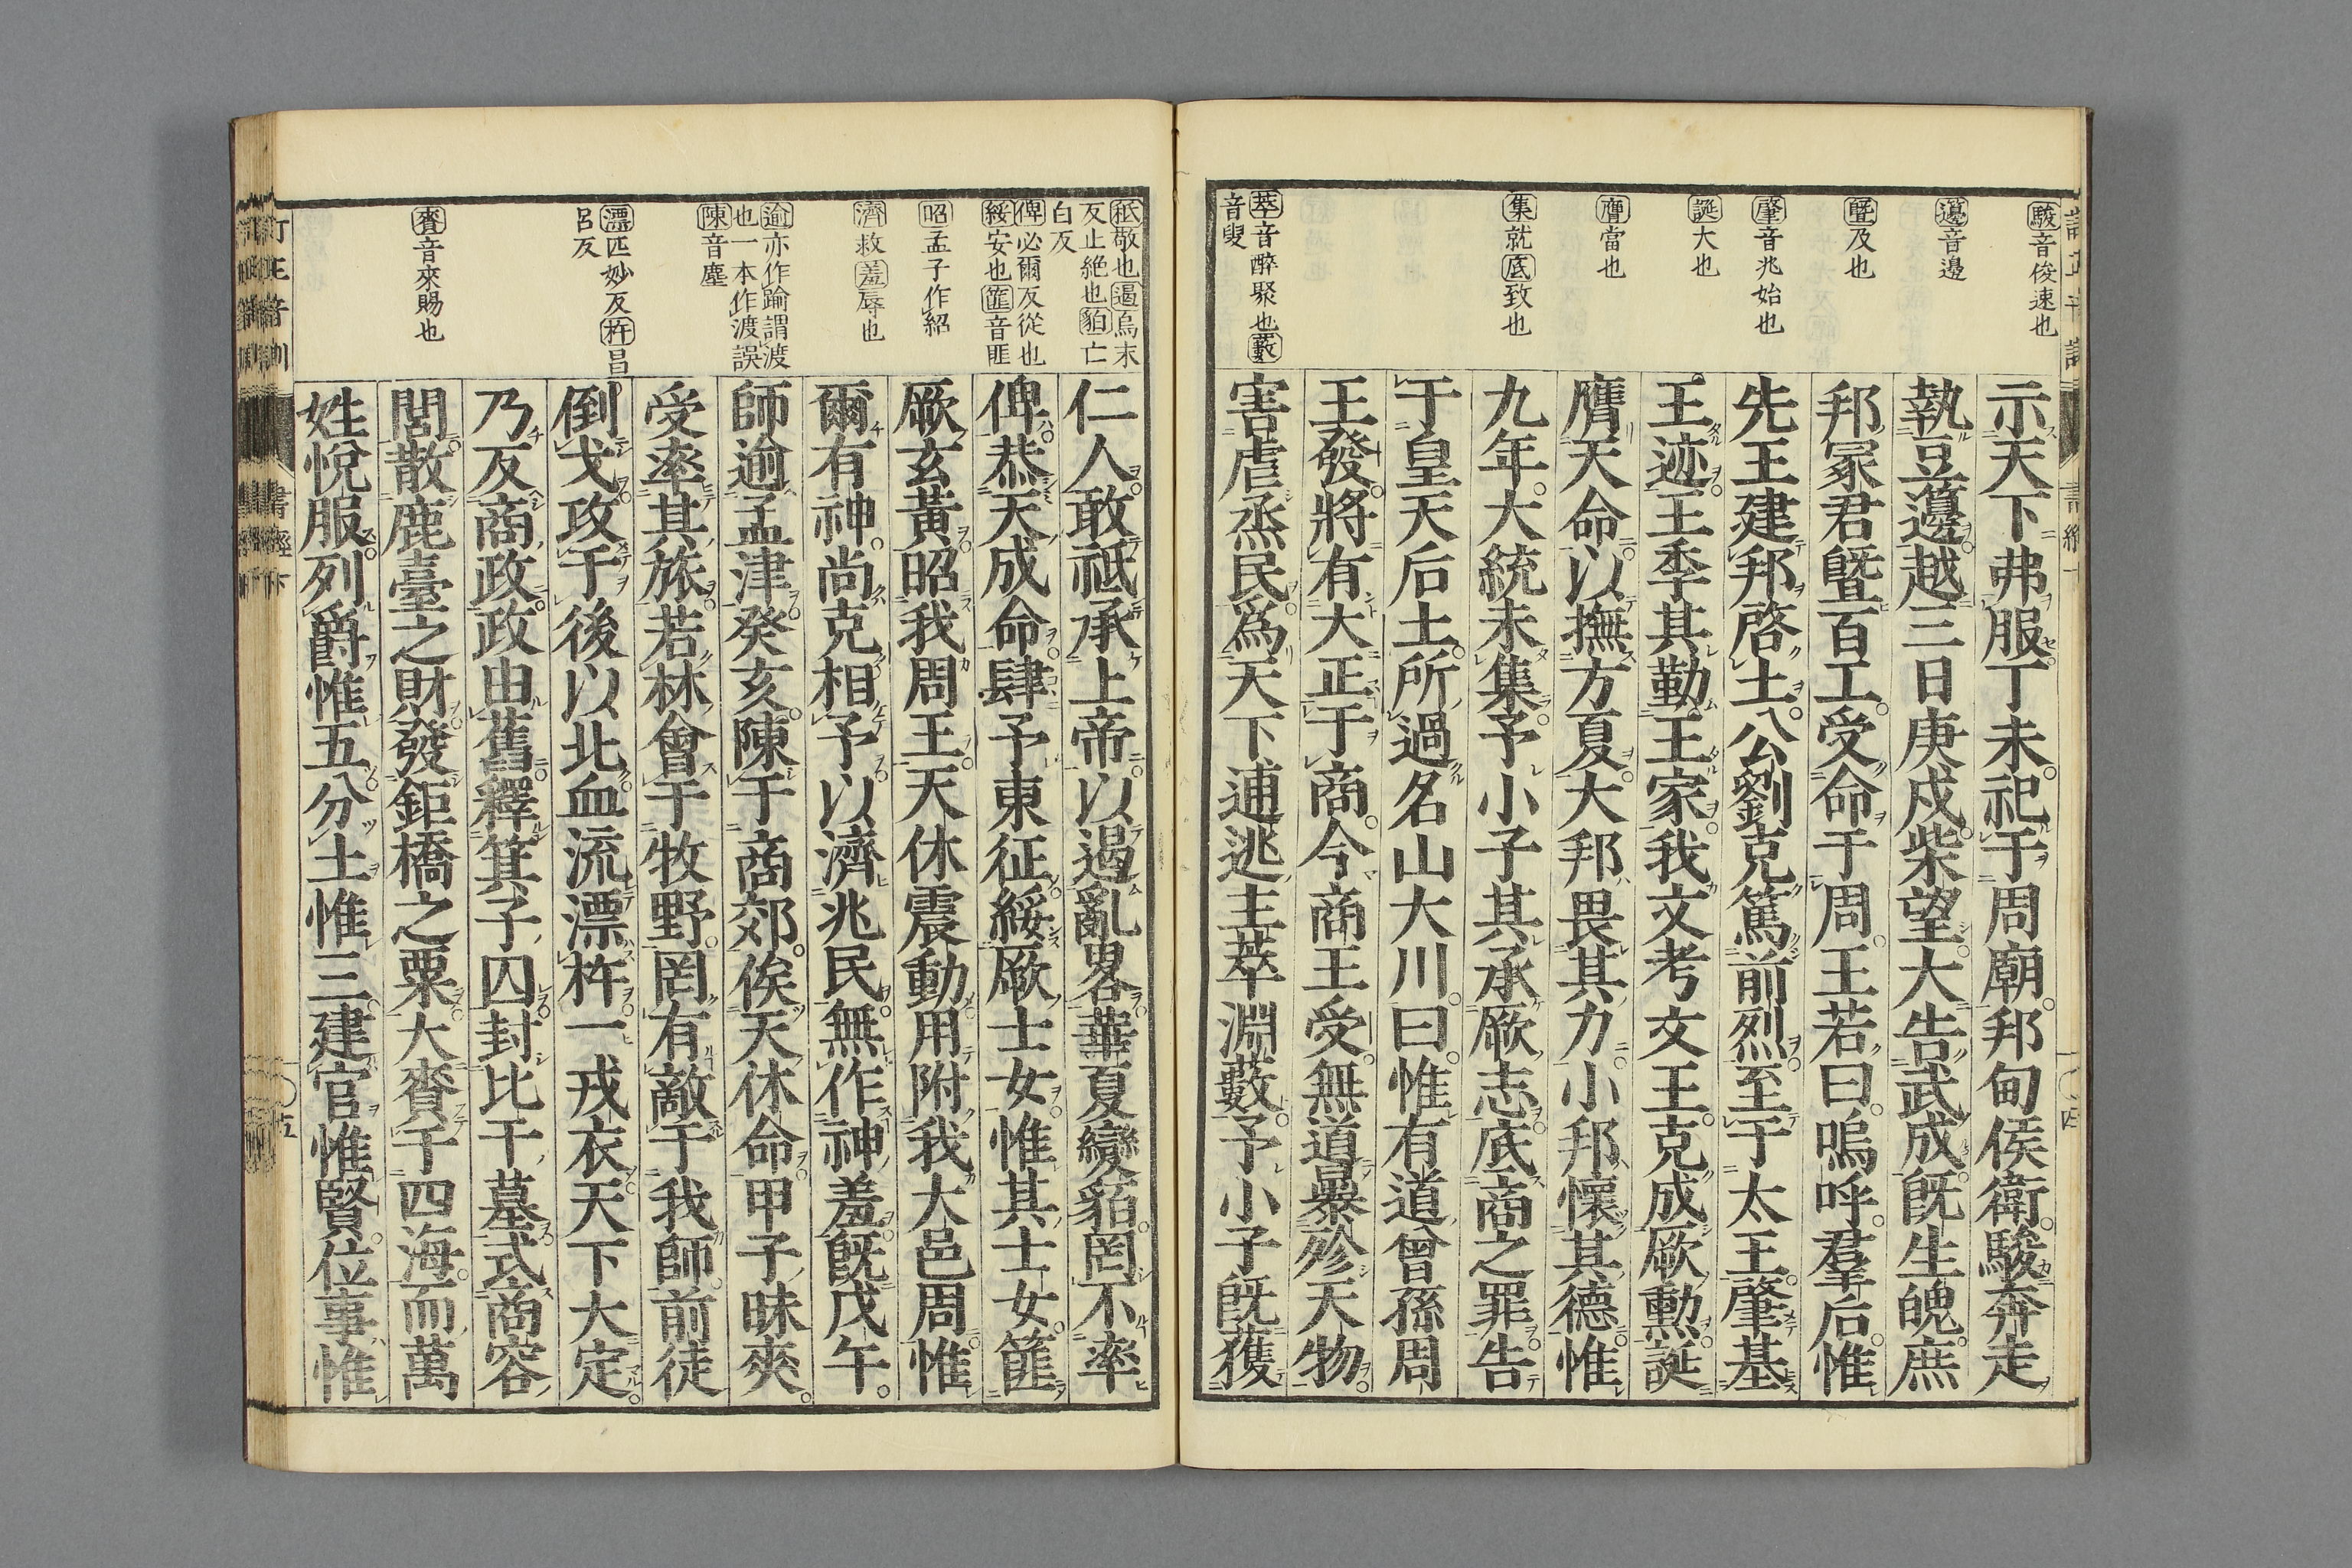 駿音俊速也
籩音邊
曁及也
肇音兆始也
誕大也
膺當也
集就底致也
萃音醉聚也藪
音叟
示天下弗服丁未祀于周廟邦甸侯衛駿奔走
執豆籩越三日庚戌柴望大告武成旣生魄庶
邦冢君曁百工受命于周王若曰嗚呼羣后惟
先王建邦啓土公劉克篤前烈至于太王肇基
王迹王季其勤王家我文考文王克成厥勳誕
膺天命以撫方夏大邦畏其力小邦懷其德惟
九年大統未集予小子其承厥志底商之罪告
于皇天后土所過名山大川曰惟有道曾孫周
王發將有大正于商今商王受無道暴殄天物
害虐烝民爲天下逋逃主萃淵藪予小子旣獲
祗敬也遏烏末
反止絶也貊亡
白反
俾必爾反從也
綏安也篚音匪
昭孟子作紹
濟救羞辱也
逾亦作踰謂渡
也一本作渡誤
陳音塵
漂匹妙反杵昌
呂反
賚音來賜也
仁人敢祗承上帝以遏亂畧華夏蠻貊罔不率
俾恭天成命肆予東征綏厥士女惟其士女篚
厥玄黃昭我周王天休震動用附我大邑周惟
爾有神尚克相予以濟兆民無作神羞旣戊午
師逾孟津癸亥陳于商郊俟天休命甲子昧爽
受率其旅若林會于牧野罔有敵于我師前徒
倒戈攻于後以北血流漂杵一戎衣天下大定
乃反商政政由舊釋箕子囚封比干墓式商容
閭散鹿臺之財發鉅橋之粟大賚于四海而萬
姓悅服列爵惟五分土惟三建官惟賢位事惟
書經下